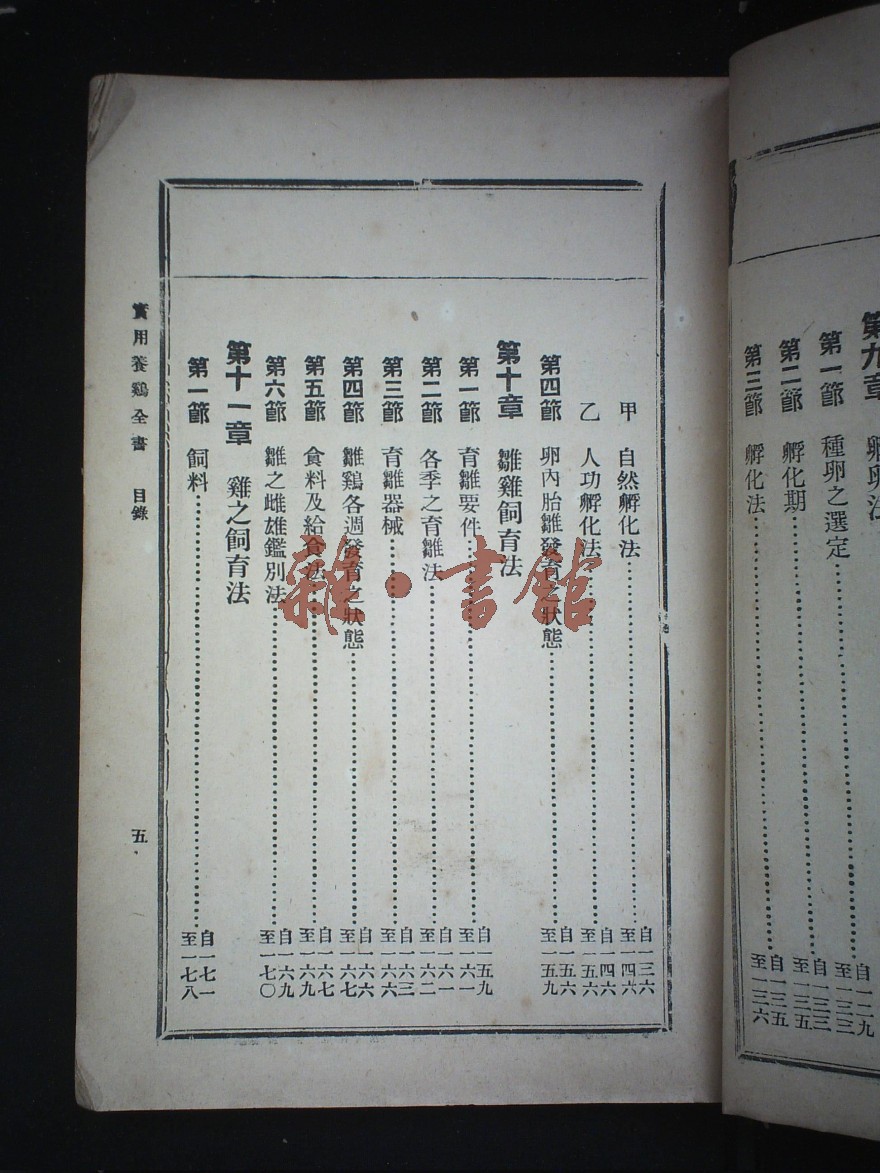 第九章 孵卵法
第一節 種卵之選定 自一二九 至一三三
第二節 孵化期 自一三三 至一三五
第三節 孵化法 自一三五 至一三六
甲 自然孵化法 自一三六 至一四六
乙 人功孵化法 自一四六 至一五六
第四節 卵內胎雛發育之狀態 自一五六 至一五九
第十章 雛雞飼育法
第一節 育雛要件 自一五九 至一六一
第二節 各季之育雛法 自一六一 至一六二
第三節 育雛器械 自一六三 至一六六
第四節 雛鷄各週發育之狀態 自一六六 至一六七
第五節 食料及給食法 自一六七 至一六九
第六節 雛之雌雄鑑別法 自一六九 至一七〇
第十一章 雞之飼育法
第一節 飼料 自一七一 至一七八
實用養鷄全書 目錄 五
雜·書館